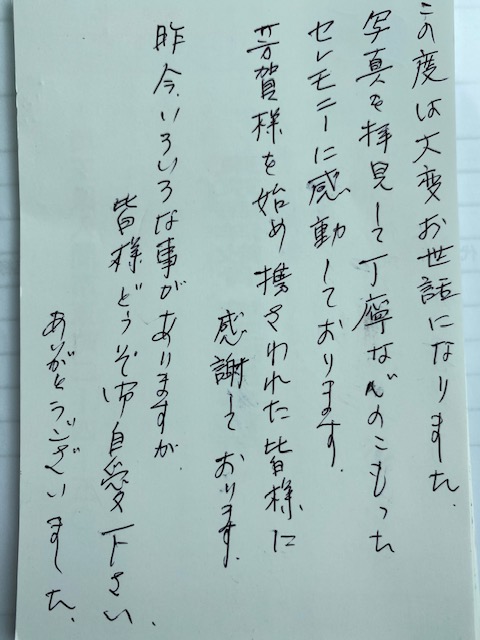 この度は大変お世話になりました.
写真を拝見して丁寧な心のこもった
セレモニーに感動しております.
芳賀様を始め携さわれた皆様に
感謝しております.
昨今、いろいろな事がありますが.
皆様どうぞ御自愛下さい.
ありがとうございました.